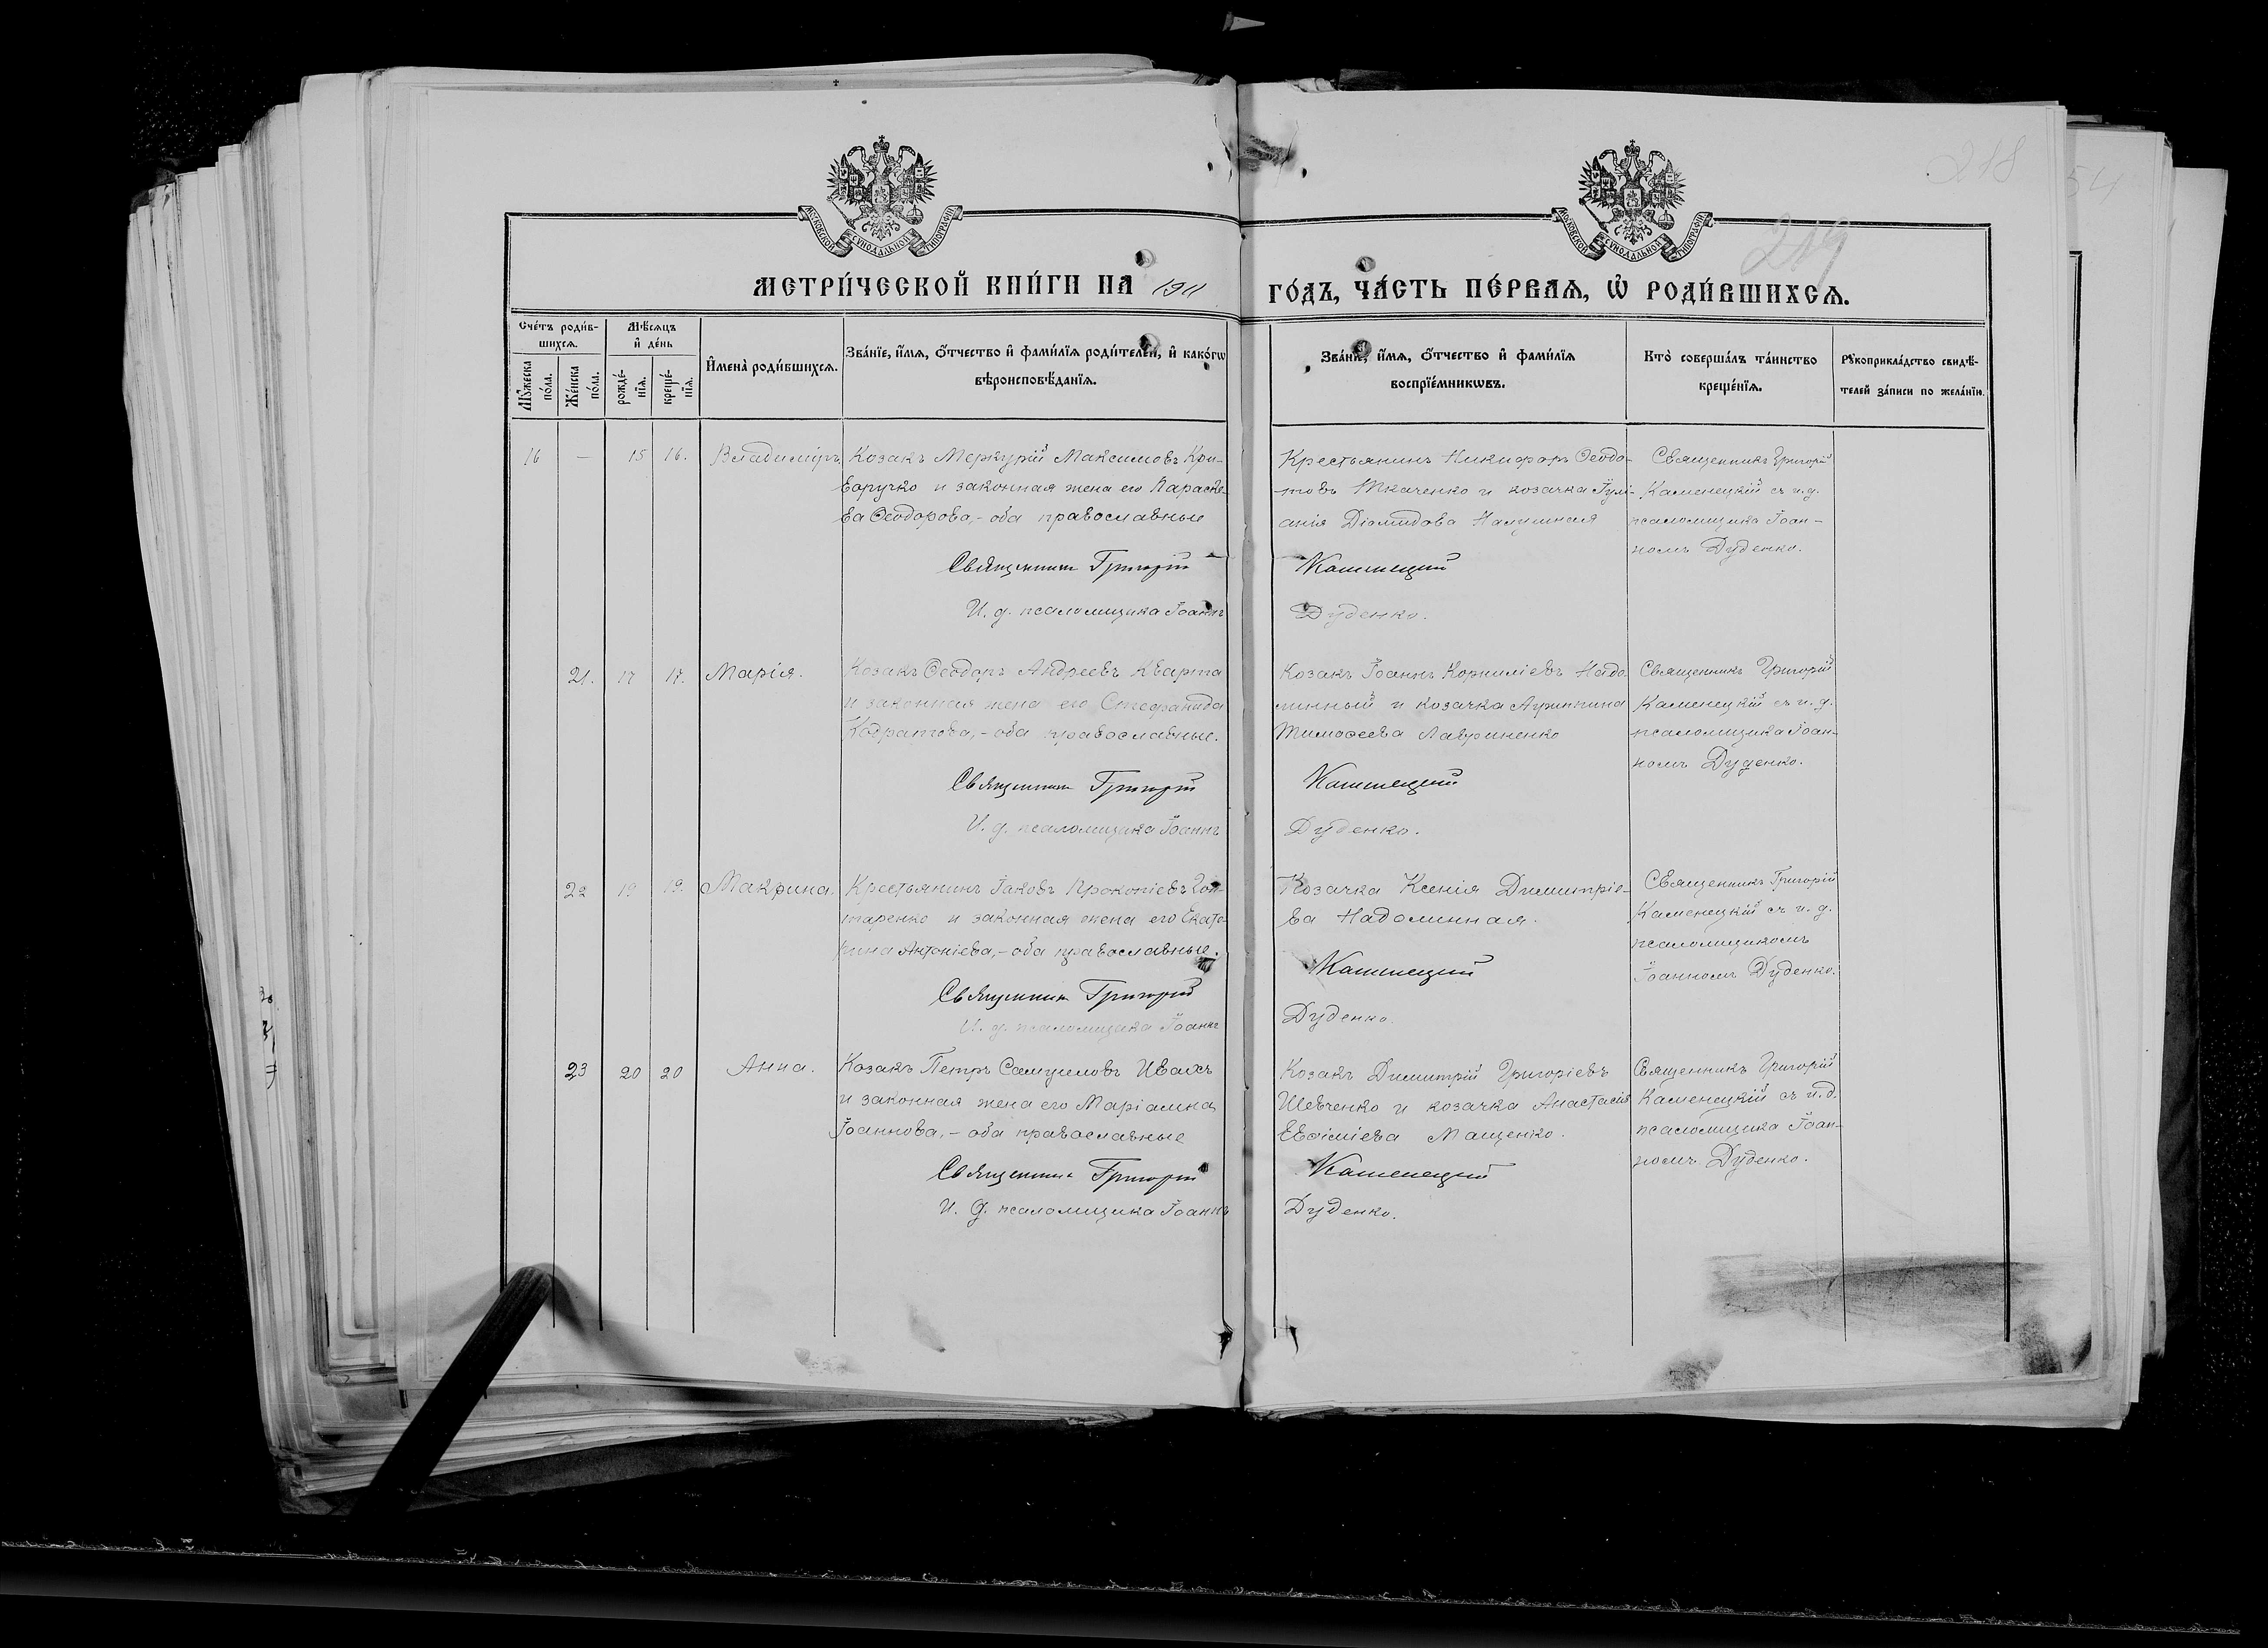 218
54
219
МОСКОВСКОЙ СУНОДАЛЬНОЙ ТИПОГРАФІИ
МОСКОВСКОЙ СУНОДАЛЬНОЙ ТИПОГРАФІИ
МЕТРИ́ЧЕСКОЙ КНИ́ГИ НА 1911 ГО́ДЪ, ЧА́СТЬ ПЕ́РВАЯ, Ѡ РОДИ́ВШИХСЯ.
Сче́тъ роди́в-
шихся.
Мꙋ́жеска
по́ла.
Же́нска
по́ла.
Мѣ́сяцъ
и҆ де́нь
рожде́-
нїя.
креще́-
нїя.
И҆мена̀ роди́вшихся.
Зва́нїе, и҆́мя, ѻ҆́тчество и҆ фами́лїя роди́телей, и҆ како́гѡ
вѣроисповѣ́данїя.
Зва́нїе, и҆́мя, ѻ҆́тчество и҆ фами́лїя
воспрїе́мникѡвъ.
Кто̀ соверша́лъ та́инство
креще́нїя.
Рꙋкоприкла́дство свидѣ́-
телей за́писи по жела́нїю.
16 — 15 16. Владиміръ
Козакъ Меркурій Максимовъ Кри-
воручко и законная жена его Параске-
ва Ѳеодорова,- оба православные
Священникъ Григорій
И. д. псаломщика Іоаннъ
Крестьянинъ Никифоръ Ѳеодо-
товъ Ткаченко и козачка Іулі-
анія Діомидова
Каменецкій
Дуденко.
Священникъ Григорій
Каменецкій съ и.д.
псаломщика Іоан-
номъ Дуденко.
21. 17 17. Марія.
Козакъ Ѳеодоръ Андреевъ Кварта
и законная жена его Стефанида
Кодратова,- оба православные.
Священникъ Григорій
И. д. псаломщика Іоаннъ
Козакъ Іоаннъ Корниліевъ Надо-
линный и козачка Агриппина
Тимоѳеева Лавриненко
Каменецкій
Дуденко.
Священникъ Григорій
Каменецкій съ и. д.
псаломщика Іоан-
номъ Дуденко.
22 19 19. Макрина.
Крестьянинъ Іаковъ Прокопіевъ Гон-
таренко и законная жена его Екате-
рина Антоніева,- оба православные.
Священникъ Григорій
И. д. псаломщика Іоаннъ
Козачка Ксенія Димитріе-
ва Надолинная.
Каменецкій
Дуденко.
Священникъ Григорій
Каменецкій съ и. д.
псаломщикомъ
Іоанномъ Дуденко.
23 20 20 Анна.
Козакъ Петръ Самуиловъ Ивахъ
и законная жена его Маріамна
Іоаннова,- оба православные
Священникъ Григорій
И. д. псаломщика Іоаннъ
Козакъ Димитрій Григоріевъ
Шевченко и козачка Анастасія
Евѳіміева Мащенко.
Каменецкій
Дуденко.
Священникъ Григорій
Каменецкій съ и.д.
псаломщика Іоан-
номъ Дуденко.